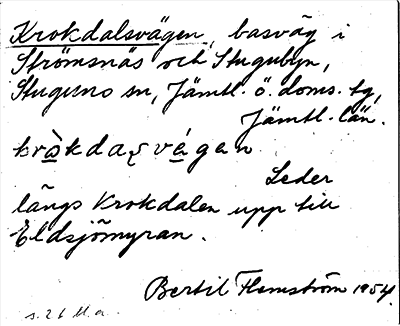 Krokdalsvägen, basväg i
Strömsnäs och Stugubyn,
Stuguns sn, Jämtl. ö. doms. tg,
Jämtl. län.
kròkdaʂvégen
Leder
längs Krokdalen upp till
Eldsjömyran.
Bertil Flemström 1954.